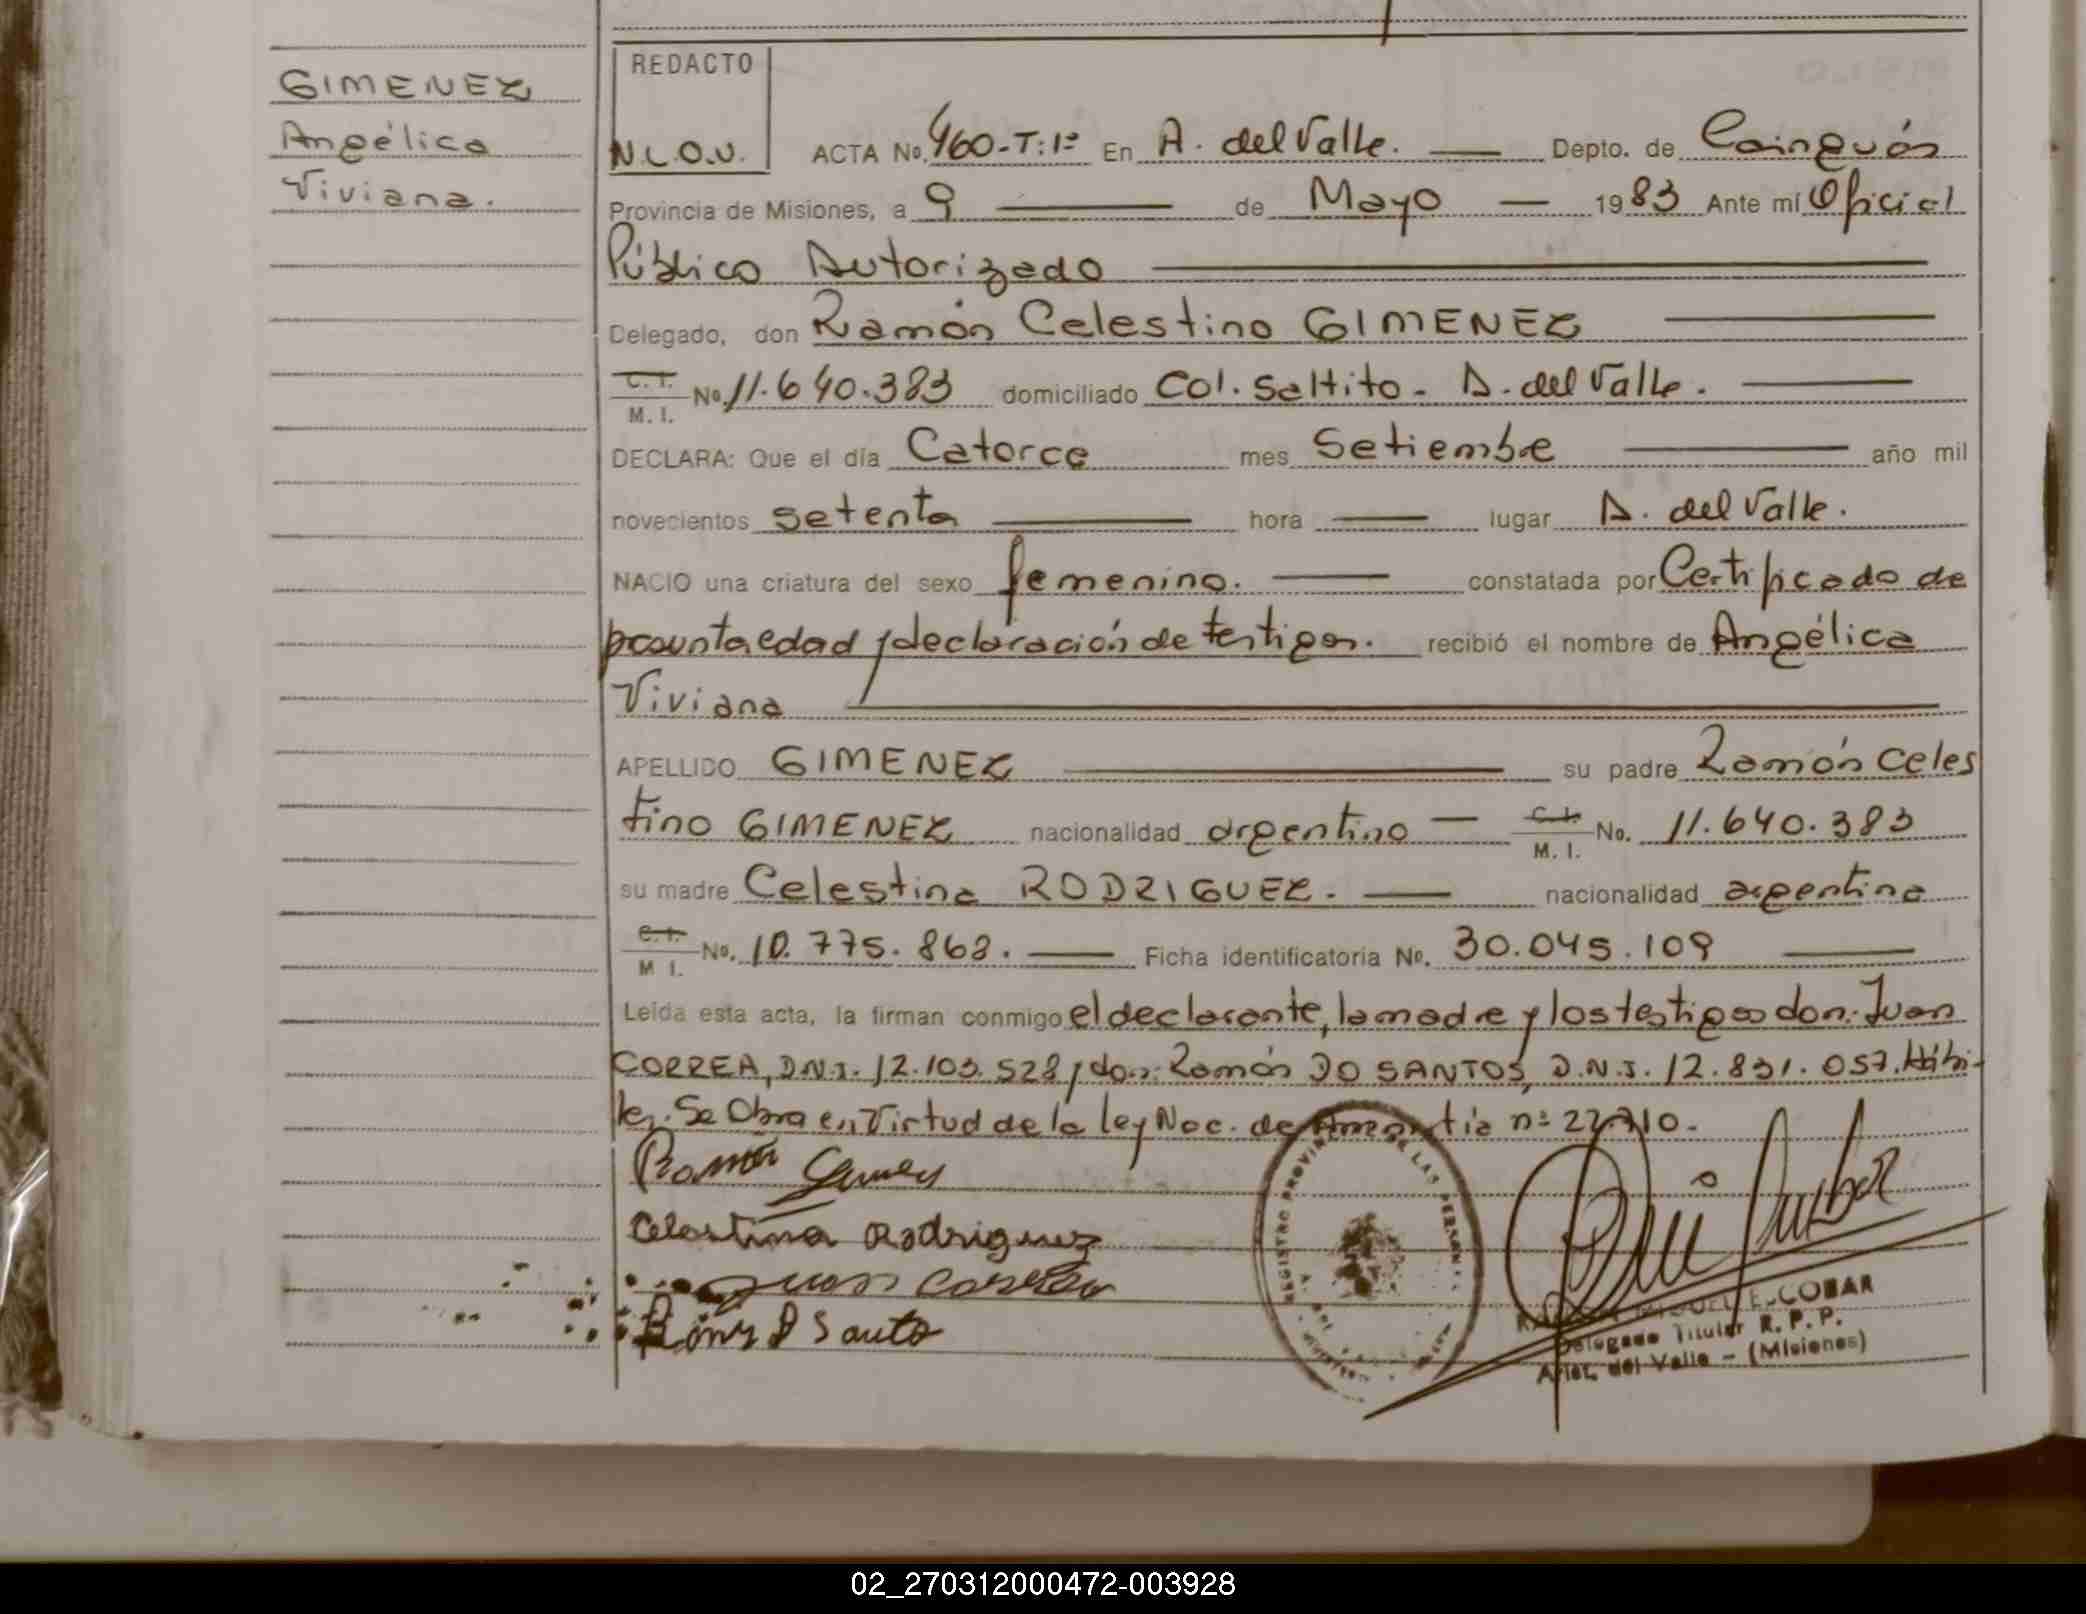 GIMENEZ
Angélica
Viviana.
REDACTO
N.L.O.V.
ACTA No. 460-T:1º En A. del Valle. Depto. de Cainguás
Provincia de Misiones, a 9 de Mayo 1983 Ante mí Oficial
Público Autorizado
Delegado, don Ramón Celestino GIMENEZ
C. I. M. I. No. 11.640.383 domiciliado Col. Saltito - A. del Valle.
DECLARA: Que el día Catorce mes Setiembre año mil
novecientos setenta hora lugar A. del Valle.
NACIO una criatura del sexo femenino. constatada por Certificado de
pcounta edad y declaración de testigos. recibió el nombre de Angélica
Viviana
APELLIDO GIMENEZ su padre Ramón Celes
tino GIMENEZ nacionalidad argentino C. I. M. I. No. 11.640.383
su madre Celestina RODRIGUEZ. nacionalidad argentina
C. I. M I. No. 10.775.868. Ficha identificatoria No. 30.045.109
Leída esta acta, la firman conmigo el declarante, la madre y los testigos don: Juan
CORREA, D.N.I. 12.103.528 y don: Ramón DO SANTOS, D.N.I. 12.831.057. Hábi-
les. Se Obra en Virtud de la ley Nac. de Amnistía nº 22.710.
Ramón Gimenez
Celestina Rodriguez
Juan Correa
Santo
REGISTRO PROVINCIAL DE LAS PERSONAS
MIGUEL ESCOBAR
Delegado Titular R. P. P.
Arist. del Valle - (Misiones)
02_270312000472-003928